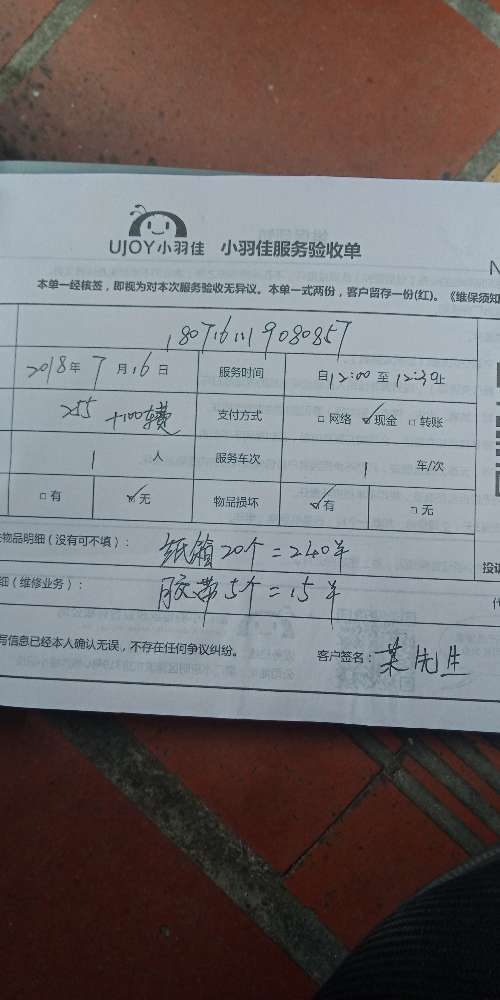 UJOY小羽佳 小羽佳服务验收单
N
本单一经核签，即视为对本次服务验收无异议。本单一式两份，客户留存一份(红)。《维保须知
1807161119080857
2018年7月16日 服务时间 自12:00至12:30止
255 +100 费 支付方式 □网络 ☑现金 □转账
1人 服务车次 1 车/次
□有 ☑无 物品损坏 ☑有 □无
物品明细（没有可不填）： 纸箱20个=240羊
投诉
细（维修业务）： 胶带5个=15羊
写信息已经本人确认无误，不存在任何争议纠纷。 客户签名：某先生